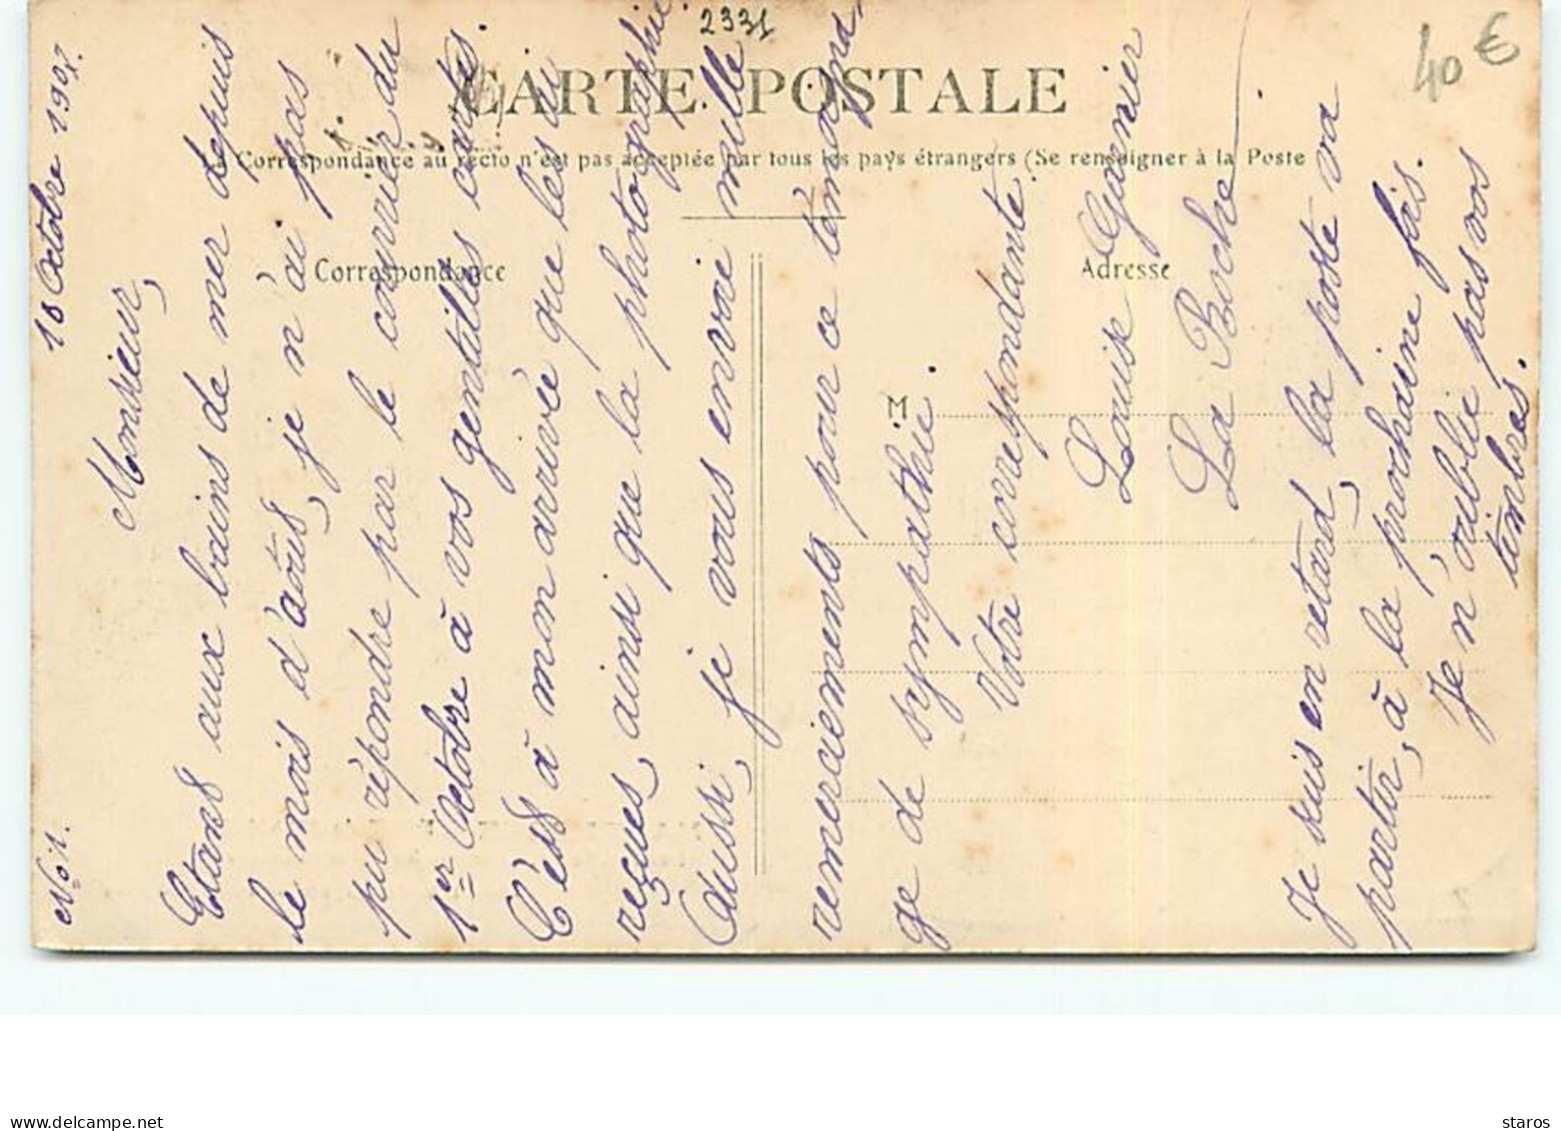 2331
40 €
CARTE POSTALE
La Correspondance au recto n'est pas acceptée par tous les pays étrangers (Se renseigner à la Poste
Correspondance
Adresse
M
No 1.
Octobre 190
Monsieur,
Etant aux bains de mer depuis
le mois d'août, je n'ai pas
pu répondre par le courrier du
1er Octobre à vos gentilles cartes.
C'est à mon arrivée que les ai
reçues, ainsi que la photographie.
Aussi, je vous envoie mille
remerciements pour ce témoigna
ge de sympathie.
Votre correspondante
Louise Garnier
La Roche
Je suis en retard, la poste va
partir, à la prochaine fois.
Je n'oublie pas vos
timbres.
www.delcampe.net
staros